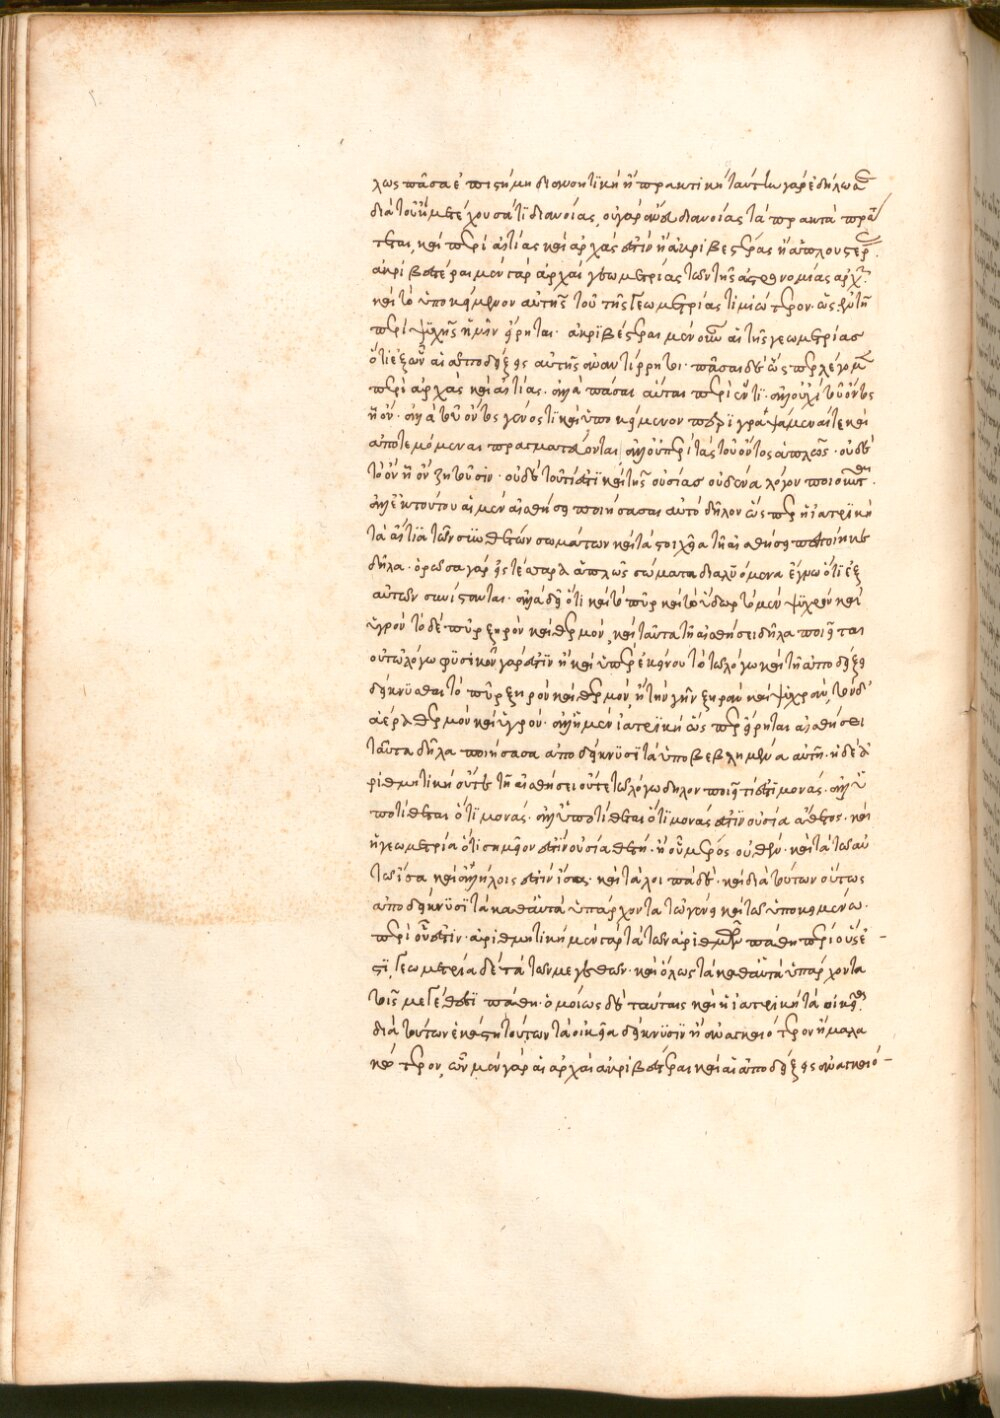 λως πᾶσα ἐπιστήμη διανοητικὴ ἢ πρακτικὴ ταύτην γὰρ ἐδήλωσε
διὰ τοῦ ἢ μετέχουσά τι διανοίας, οὐ γὰρ ἄνευ διανοίας τὰ πρακτὰ πράτ
τεται, καὶ περὶ αἰτίας καὶ ἀρχάς ἐστιν ἢ ἀκριβεστέρας ἢ ἁπλουστέρας.
ἀκριβέστεραι μὲν γὰρ ἀρχαὶ γεωμετρίας τῶν τῆς ἀστρονομίας ἀρχῶν.
καὶ τὸ ὑποκείμενον αὐτῆς τοῦ τῆς γεωμετρίας τιμιώτερον· ὡς ἐν τῇ
περὶ ψυχῆς ἡμῖν εἴρηται. ἀκριβέστεραι μὲν οὖν αἱ τῆς γεωμετρίας
ὅτι ἐξ ὧν αἱ ἀποδείξεις αὐτῆς ἀναντίρρητοι. πᾶσαι δὲ ὥσπερ λέγομεν
περὶ ἀρχὰς καὶ αἰτίας. ἀλλὰ πᾶσαι αὗται περὶ ἕν τι. ἀλλ' οὐχὶ τοῦ ὄντος
ᾗ ὄν. ἀλλὰ τοῦ ὄντος γένος τι καὶ ὑποκείμενον περιγραψάμεναί τε καὶ
ἀποτεμόμεναι πραγματεύονται, ἀλλ' οὐ περὶ τὰς τοῦ ὄντος ἁπλῶς. οὐδὲ
τὸ ὂν ᾗ ὂν ζητοῦσιν. οὐδὲ τοῦ τί ἐστι καὶ τῆς οὐσίας οὐδένα λόγον ποιοῦνται.
ἀλλ' ἐκ τούτου αἱ μὲν αἰσθήσει ποιήσασαι αὐτὸ δῆλον ὥσπερ ἡ ἰατρικὴ
τὰ αἴτια τῶν συνθέτων σωμάτων καὶ τὰ στοιχεῖα τῇ αἰσθήσει πεποίηκε
δῆλα. ὁρῶσα γὰρ εἰς τέσσαρα ἁπλῶς σώματα διαλυόμενα ἔγνω ὅτι ἐξ
αὐτῶν συνίστανται. ἀλλὰ δὴ ὅτι καὶ τὸ πῦρ καὶ τὸ ὕδωρ τὸ μὲν ψυχρὸν καὶ
ὑγρὸν τὸ δὲ πῦρ ξηρὸν καὶ θερμόν, καὶ ταῦτα τῇ αἰσθήσει δῆλα ποιεῖται
οὐ τῷ λόγῳ φυσικοῦ γάρ ἐστιν ἢ καὶ ὑπὲρ ἐκείνου τὸ τῷ λόγῳ καὶ τῇ ἀποδείξει
δείκνυσθαι τὸ πῦρ ξηρὸν καὶ θερμόν, ἢ τὴν γῆν ξηρὰν καὶ ψυχράν, τὸν δ'
ἀέρα θερμὸν καὶ ὑγρόν. ἀλλ' ἡ μὲν ἰατρικὴ ὥσπερ εἴρηται αἰσθήσει
ταῦτα δῆλα ποιήσασα ἀποδείκνυσι τὰ ὑποβεβλημένα αὐτῇ. ἡ δὲ ἀ
ριθμητικὴ οὔτε τῇ αἰσθήσει οὔτε τῷ λόγῳ δῆλον ποιεῖ τί ἐστι μονάς. ἀλλ' ὑ
ποτίθεται ὅτι μονάς. ἀλλ' ὑποτίθεται ὅτι μονάς ἐστιν οὐσία ἄθετος. καὶ
ἡ γεωμετρία ὅτι σημεῖόν ἐστιν οὐσία θετή. ἢ οὗ μέρος οὐθέν. καὶ τὰ τῷ αὐ
τῷ ἴσα καὶ ἀλλήλοις ἐστὶν ἴσα. καὶ τὰ λοιπὰ δέ. καὶ διὰ τούτων οὕτως
ἀποδείκνυσι τὰ καθ' αὑτὰ ὑπάρχοντα τῷ γένει καὶ τῷ ὑποκειμένῳ.
περὶ οὗ ἐστιν. ἀριθμητικὴ μὲν γὰρ τὰ τῶν ἀριθμῶν πάθη περὶ οὕς ἐ-
στι, γεωμετρία δὲ τὰ τῶν μεγεθῶν. καὶ ὅλως τὰ καθ' αὑτὰ ὑπάρχοντα
τοῖς μεγέθεσι πάθη. ὁμοίως δὲ ταύταις καὶ ἡ ἰατρικὴ τὰ οἰκεῖα.
διὰ τούτων ἑκάστη τούτων τὰ οἰκεῖα δείκνυσιν ἢ ἀναγκαιότερον ἢ μαλα
κώτερον, ὧν μὲν γὰρ αἱ ἀρχαὶ ἀκριβέστεραι καὶ αἱ ἀποδείξεις ἀναγκαιό-